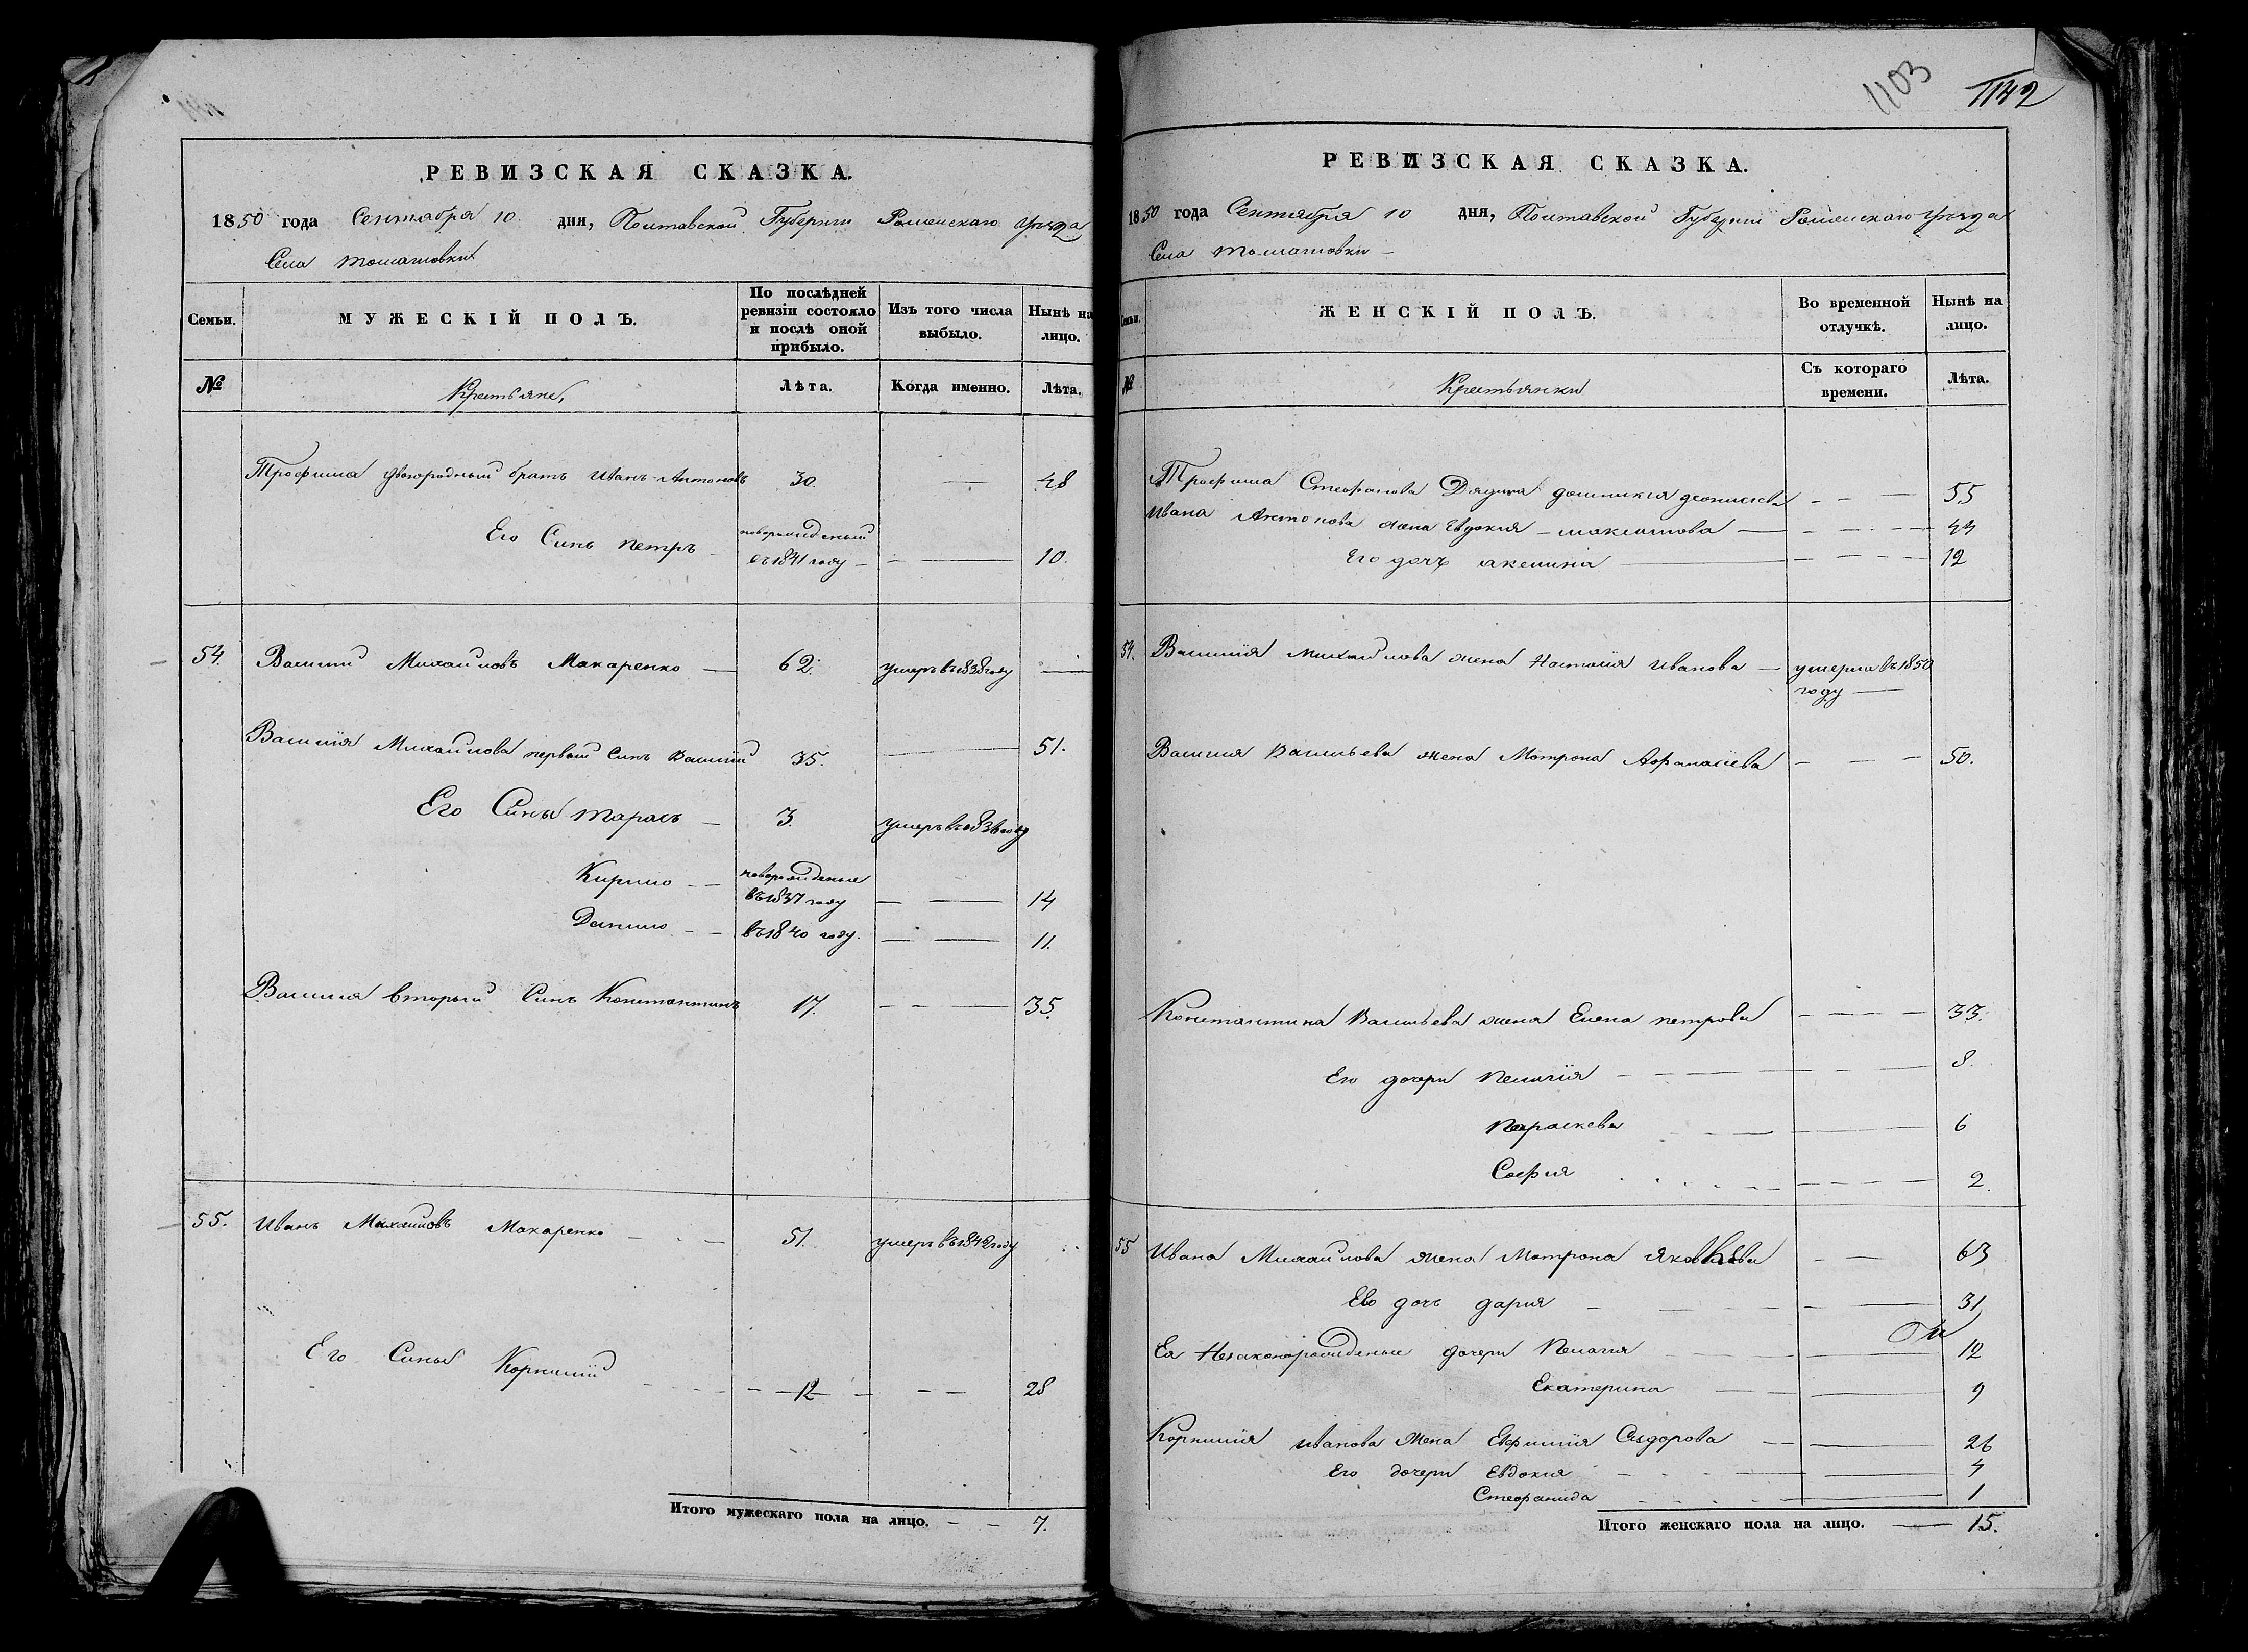 РЕВИЗСКАЯ СКАЗКА.
1850 года Сентября 10 дня, Полтавской Губернии Роменскаго уезда
Села Томашовки
Семьи.
МУЖЕСКІЙ ПОЛЪ.
По послѣдней ревизіи состояло и послѣ оной прибыло.
Изъ того числа выбыло.
Нынѣ на лицо.
№
Крестьяне,
Лѣта.
Когда именно.
Лѣта.
Трофима двоюродный братъ Иванъ Антоновъ 30. — 48
Его Синъ петръ новорожденый въ 1841 году — — 10.
54. Василий Михайловъ Макаренко — 62. умеръ въ 1838 году —
Василія Михайлова первый Синъ Василий 35. — 51.
Его Сины тарасъ — 3. умеръ въ 1836 году
Кирило — — новорожденые въ 1837 году — — 14
Данило — — въ 1840 году. — — 11.
Василия вторый Синъ Константинъ 17. — — — 35.
55. Иванъ Михайловъ Макаренко — 51. умеръ въ 1842 году
Его Сины Корнилий 12 — — 28
Итого мужескаго пола на лицо. — — 7.
1103
1142
РЕВИЗСКАЯ СКАЗКА.
1850 года Сентября 10 дня, Полтавской Губернии Роменскаго уезда
Села Томашовки —
Семьи.
ЖЕНСКІЙ ПОЛЪ.
Во временной отлучкѣ.
Нынѣ на лицо.
№
Крестьянки
Съ котораго времени.
Лѣта.
Трофима Стефанова Дядина домникия деонисиева — — — 55
Ивана Антонова жена Евдокия — максимова — — — 44
Его дочъ акелина — — — 12
54. Василия михайлова жена Настасия Иванова — умерла въ 1850
году —
Василия Васильева жена Мотрона Афанасиева — — — 50.
Константина Васильева жена Елена петрова — — — 33.
Его дочери Пелагія — — — 8.
Параскева — — 6
София — — — 2.
55 Ивана Михайлова жена Мотрона Яковлева — — 63
Ево дочъ дария — — — 31
Ея Незаконорожденые дочери Пелагия — — 12
Екатерина — — 9
Корнилия иванова жена Евфимия Сидорова — — 26
Его дочери Евдокия — — 4
Стефанида — — 1
Итого женскаго пола на лицо. — 15.